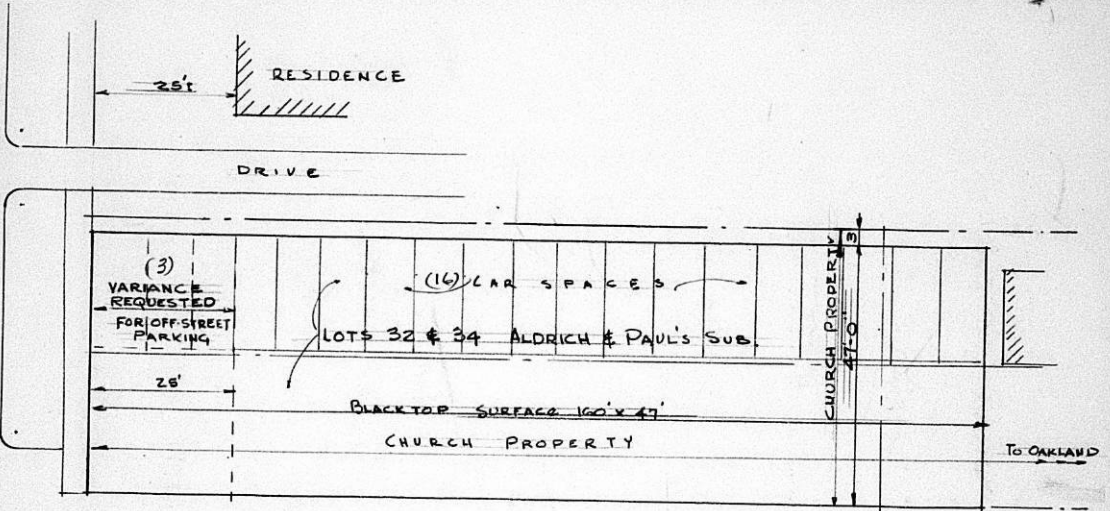 25'±
RESIDENCE
DRIVE
(3)
VARIANCE
REQUESTED
FOR OFF-STREET
PARKING
(16) CAR SPACES
LOTS 32 & 34 ALDRICH & PAUL'S SUB.
CHURCH PROPERTY
3'
47'-0"
25'
BLACKTOP SURFACE 160' x 47'
CHURCH PROPERTY
TO OAKLAND